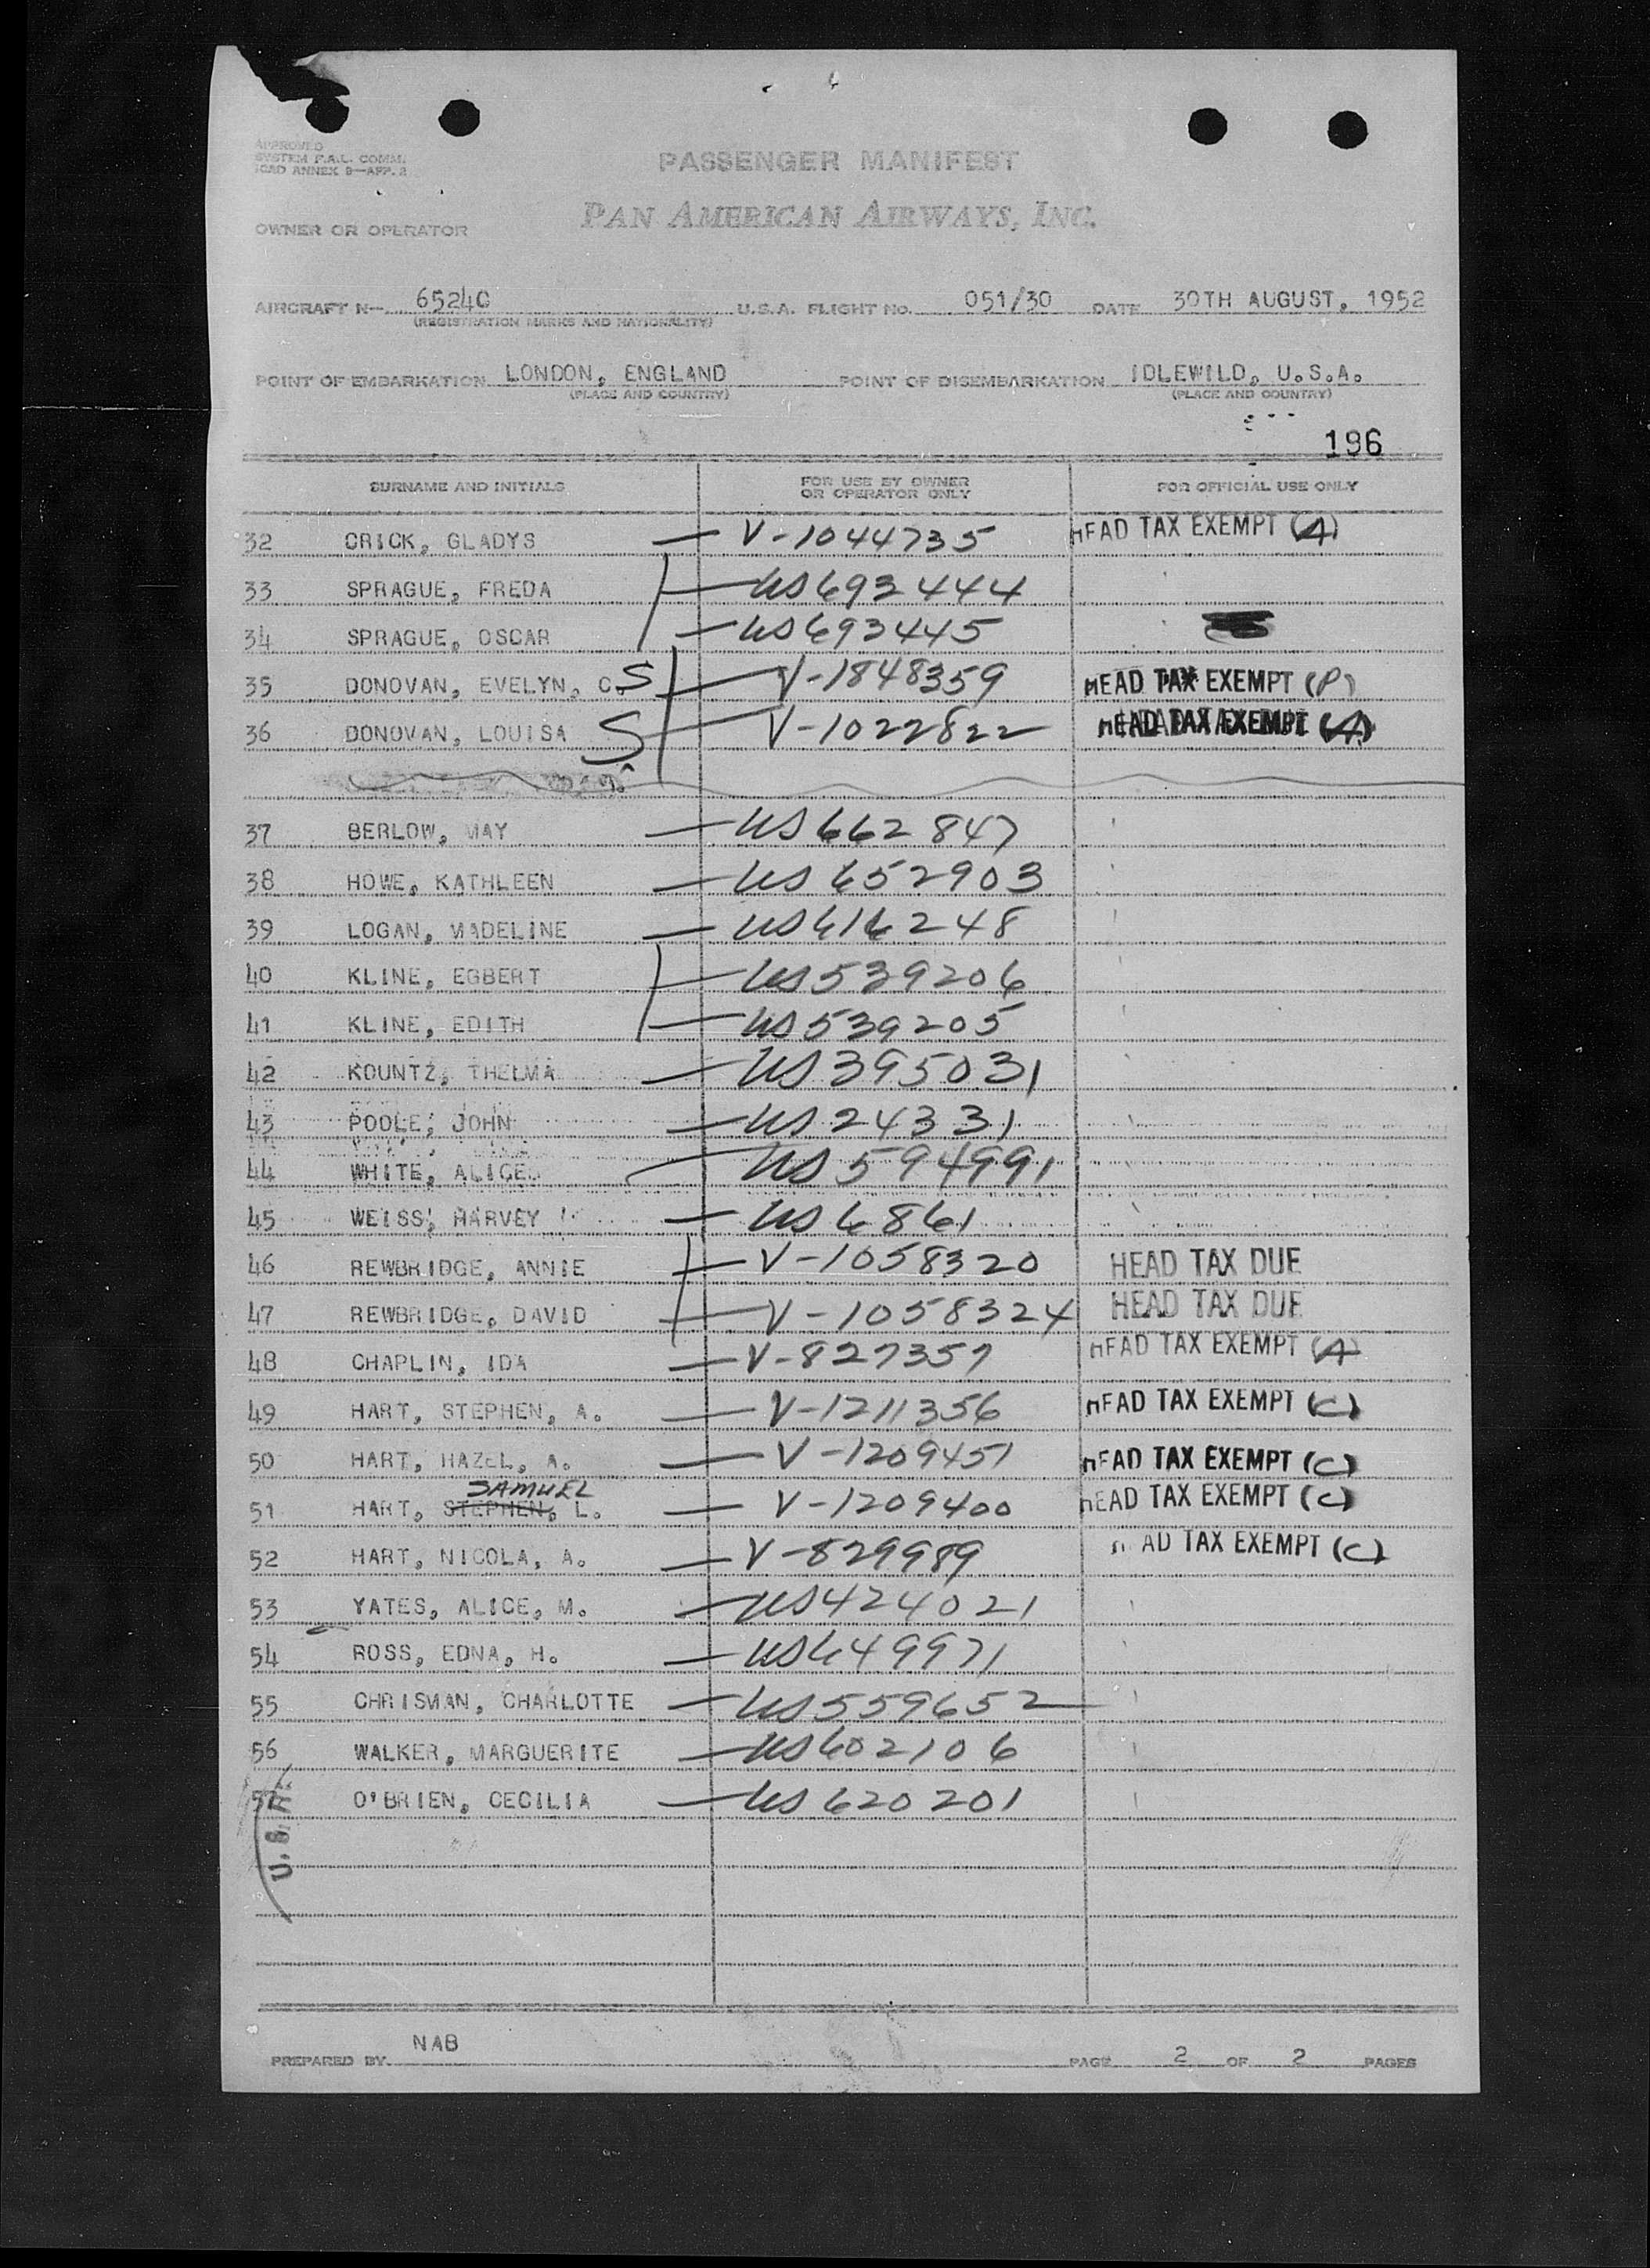 APPROVED
SYSTEM F.A.L. COMM.
ICAO ANNEX 9—APP. 2
PASSENGER MANIFEST
OWNER OR OPERATOR PAN AMERICAN AIRWAYS, INC.
AIRCRAFT N— 6524C U.S.A. FLIGHT NO. 051/30 DATE 30TH AUGUST, 1952
(REGISTRATION MARKS AND NATIONALITY)
POINT OF EMBARKATION LONDON, ENGLAND POINT OF DISEMBARKATION IDLEWILD, U.S.A.
(PLACE AND COUNTRY) (PLACE AND COUNTRY)
196
SURNAME AND INITIALS FOR USE BY OWNER OR OPERATOR ONLY FOR OFFICIAL USE ONLY
32 CRICK, GLADYS — V-1044735 HEAD TAX EXEMPT (A)
33 SPRAGUE, FREDA — US692444
34 SPRAGUE, OSCAR — US693445
35 DONOVAN, EVELYN, C. S — V-1848359 HEAD TAX EXEMPT (P)
36 DONOVAN, LOUISA S — V-1022822 HEAD TAX EXEMPT (A)
37 BERLOW, MAY — US662847
38 HOWE, KATHLEEN — US652903
39 LOGAN, MADELINE — US616248
40 KLINE, EGBERT — US539206
41 KLINE, EDITH — US539205
42 KOUNTZ, THELMA — US395031
43 POOLE, JOHN — US24331
44 WHITE, ALICE — US594991
45 WEISS, HARVEY — US6861
46 REWBRIDGE, ANNIE — V-1058320 HEAD TAX DUE
47 REWBRIDGE, DAVID — V-1058324 HEAD TAX DUE
48 CHAPLIN, IDA — V-827357 HEAD TAX EXEMPT (A)
49 HART, STEPHEN, A. — V-1211356 HEAD TAX EXEMPT (C)
50 HART, HAZEL, A. — V-1209451 HEAD TAX EXEMPT (C)
SAMUEL
51 HART, STEPHEN, L. — V-1209400 HEAD TAX EXEMPT (C)
52 HART, NICOLA, A. — V-829989 HEAD TAX EXEMPT (C)
53 YATES, ALICE, M. — US424021
54 ROSS, EDNA, H. — US649971
55 CHRISMAN, CHARLOTTE — US559652
56 WALKER, MARGUERITE — US602106
57 O'BRIEN, CECILIA — US620201
PREPARED BY NAB PAGE 2 OF 2 PAGES